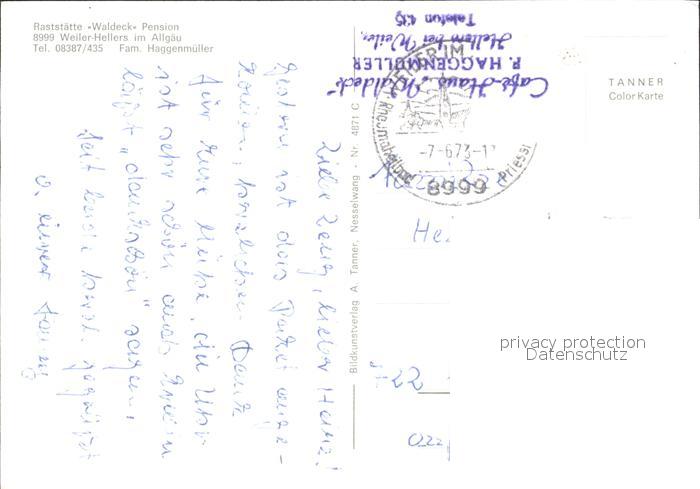 Raststätte »Waldeck« Pension
8999 Weiler-Hellers im Allgäu
Tel. 08387/435 Fam. Haggenmüller
Café-Haus "Waldeck"
P. HAGGENMÜLLER
Hellers bei Weiler,
Telefon 435
TANNER
Color Karte
WEILER IM
Priessn
-7-6.73-1
8999
Bildkunstverlag A. Tanner, Nesselwang - Nr. 4871 C
Liebe Zenz, lieber Heinz!
Gestern ist das Paket ange-
kommen, herzlichen Dank
für Eure Mühe, die Uhr
ist sehr schön auch Erwin
läßt "dankschön" sagen.
Seid beide herzl. gegrüßt
v. eurer Fanny
He
722
privacy protection
Datenschutz